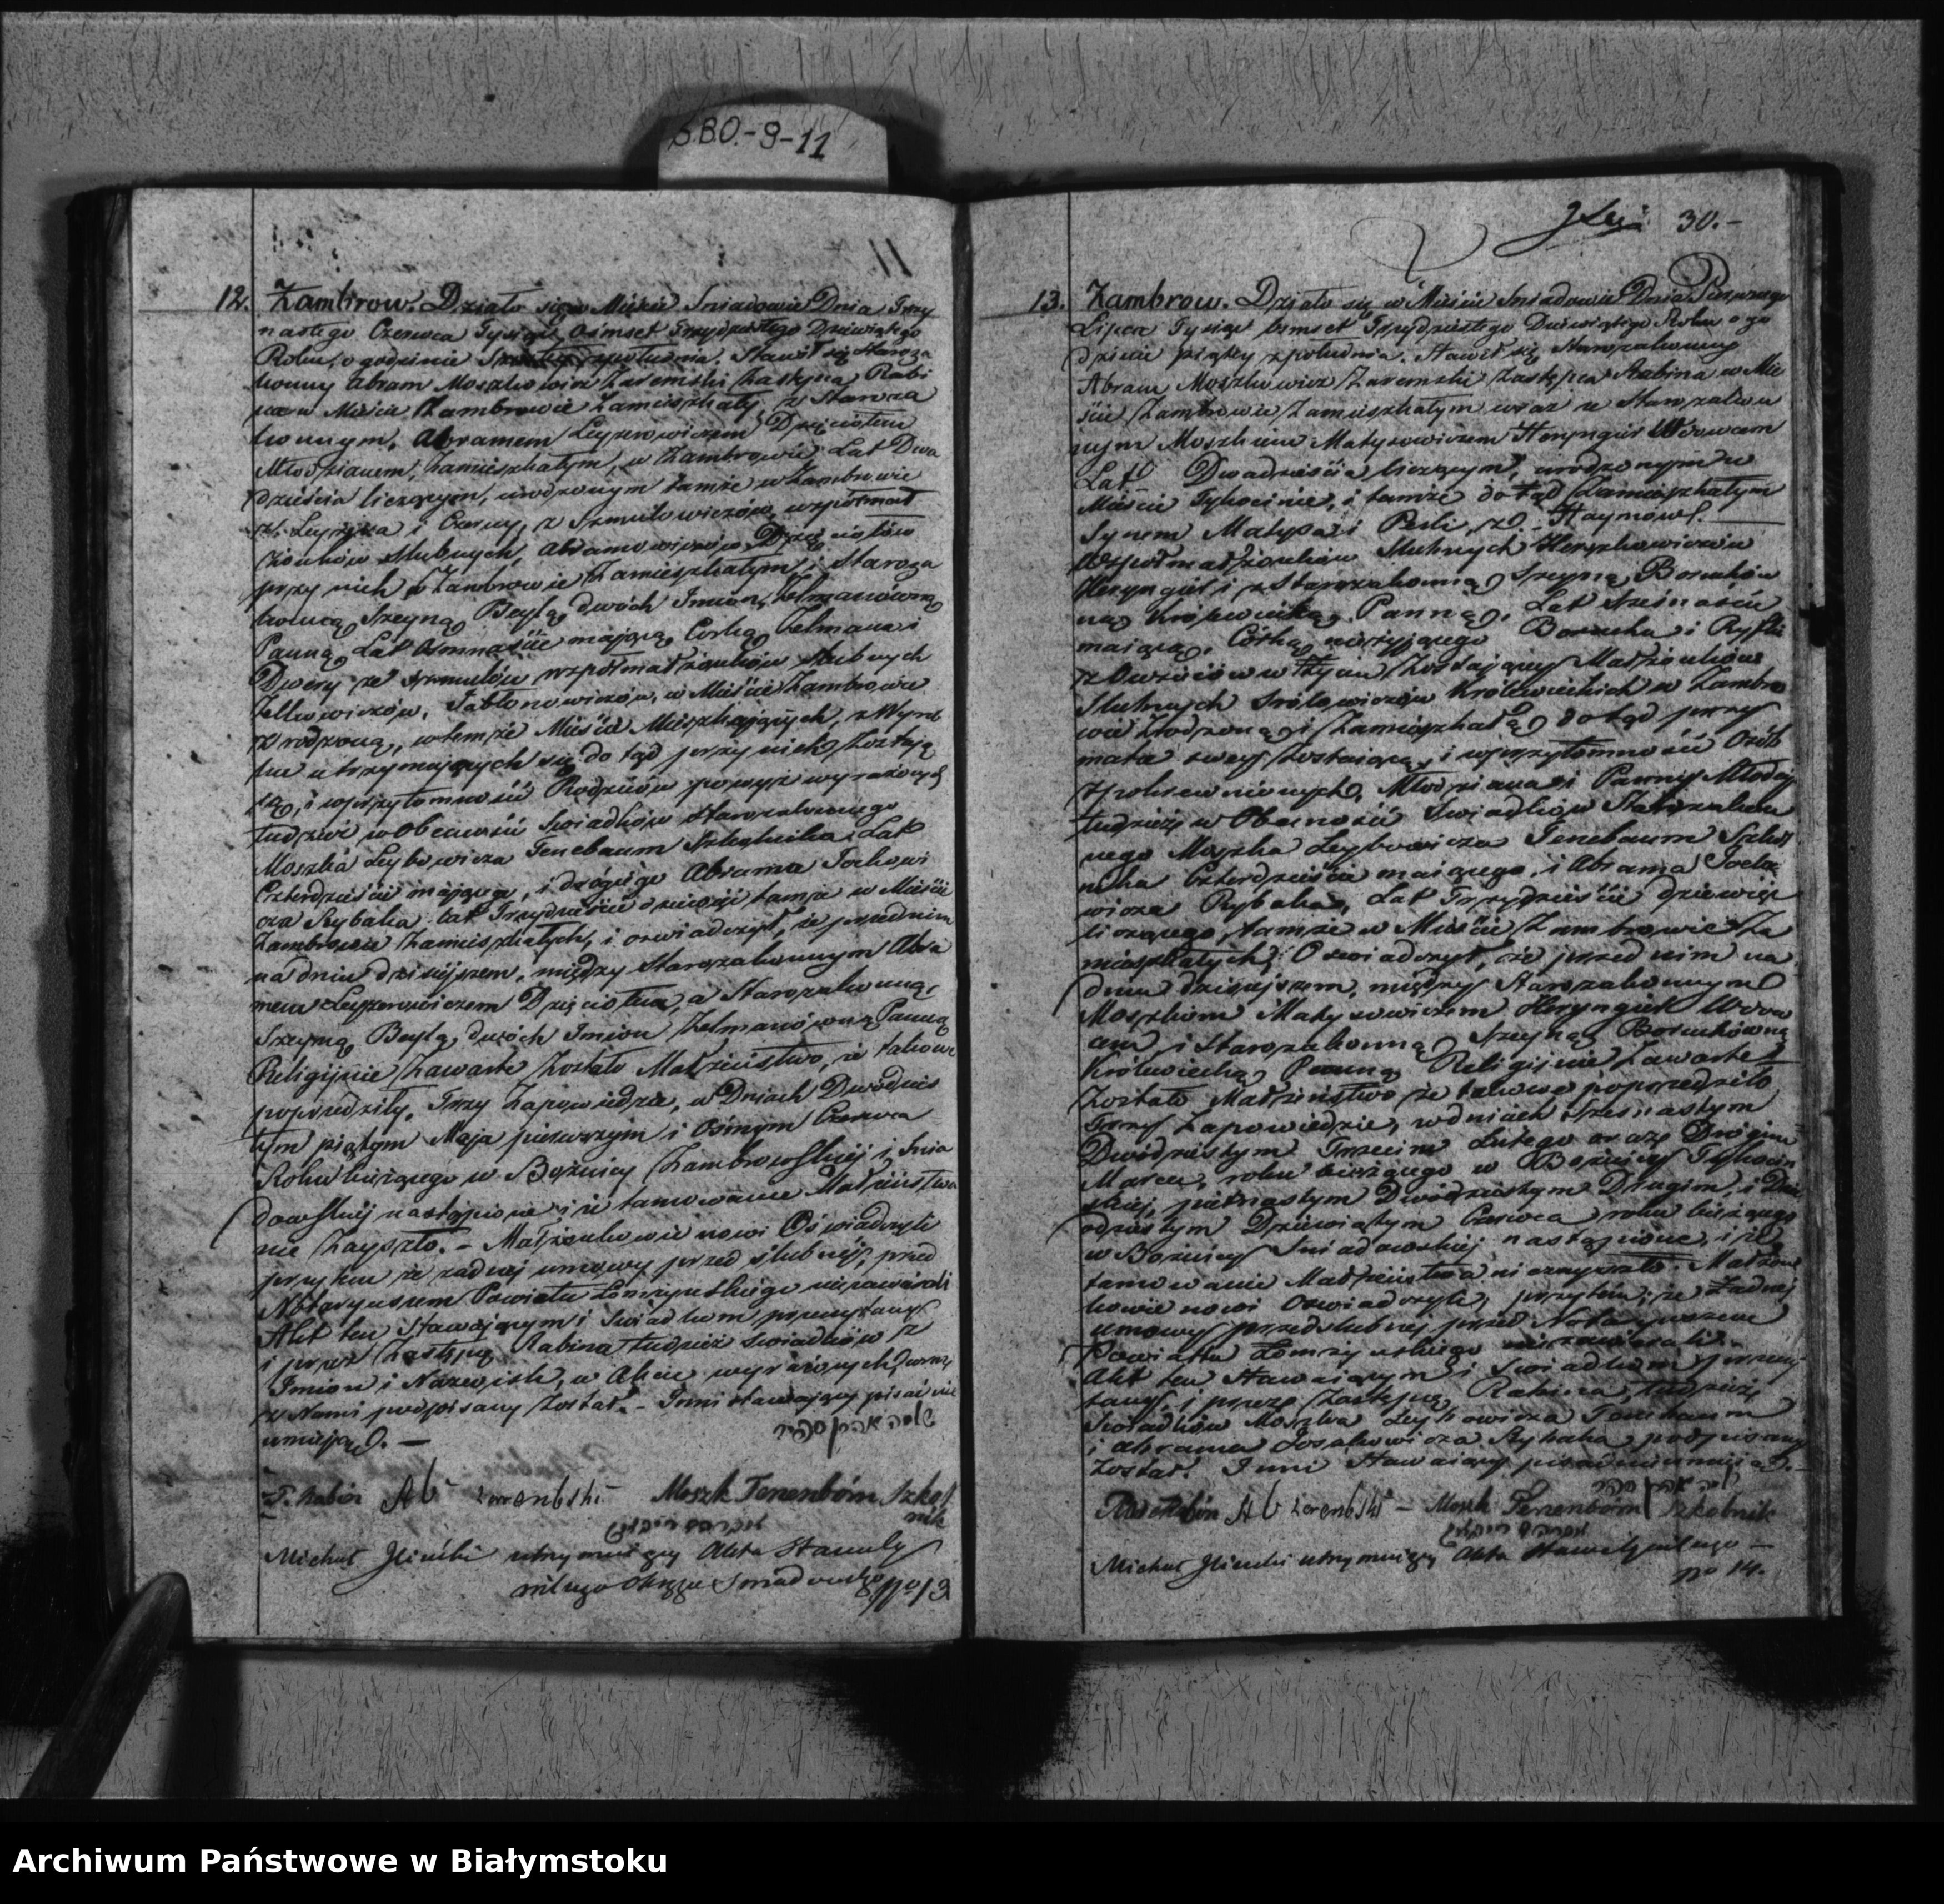 S.B.O.-9-11
11
12. Zambrow. Działo się w Mieście Sniadowie Dnia Trzy
nastego Czerwca Tysiąc Osmset Trzydziestego Dziewiątego
Roku, o godzinie społudnia. Stawił się Staroza
konny Abram Moszkowicz Zaremski Zastępca Rabi
na w Mieście Zambrowie Zamieszkały, z Staroza
konnym, Abramem Leyzerowiczem Dzięciołem
Młodzianem, Zamieszkałym, w Zambrowie, Lat Dwa
dzieścia liczącym, urodzonym tamże w Zambrowie
z Leyzera i Czerny, z Szmulowiczów, wspołmał
żonków Slubnych, Abramowiczów Dzięciołów
przy nich w Zambrowie Zamieszkałym, i Staroza
konną Szeyną Beylą dwóch Imion, Zelmanówną
Panną, Lat Osmnaście mającą, Corką Zelmana i
Dwery ze Szmulów wspołmałżonków slubnych
Zelkowiczów, Jabłonowiczów, w Mieście Zambrowie
zrodzoną, w temże Mieście Mieszkających, z Wyrob
ku utrzymujących się do tąd przy nich Zostają
cą, i w przytomności Rodziców powyż wyrażonych
tudzież w Obecności Swiadków Starozakonnego
Moszka Leybowicza Tenebaum Szkolnika Lat
Czterdzieście mającego, i drógiego Abrama Joskowi
cza Rybaka lat Trzydzieście dziewięć tamże w Mieście
Zambrowie Zamieszkałych, i oswiadczył, że przed nim
na dniu dzisiejszem, między Starozakonnym Abra
mem Leyzerowiczem Dzięciołem, a Starozakonną,
Szeyną Beylą dwóch Imion Zelmanówną Panną
Religijnie Zawarte Zostało Małżeństwo, że takowe
poprzedziły, Trzy Zapowiedzie, w Dniach Dwódzies
tym piątym Maja pierwszym i Osmym Czerwca
Roku bieżącego w Bożnicy Zambrowskiej i Snia
dowskiej nastąpione i że tamowanie Małżeństwa
nie Zayszło. – Małżonkowie nowi Oświadczyli
przytem że żadnej umowy przed ślubnej, przed
Notaryuszem Powiatu Łomżyńskiego niezawierali
Akt ten Stawającym i Swiadkom przeczytany
i przez Zastępcę Rabina tudzież Swiadków z
Imion i Nazwisk, w Akcie wyrażonych, wraz
z Nami podpisany Został. – Inni stawający pisać nie
umieją. –
Z. Rabin Ab Zarembski Moszk Tenenbóm Szkol
nik
Michał Gliński utrzymujący Akta Stanu Cy
wilnego Okręgu Sniadowskiego
No 13
30.-
13. Zambrow. Działo się w Mieście Sniadowie Dnia Pierwszego
Lipca Tysiąc Osmset Trzydziestego Dziewiątego Roku o go
dzinie piątey z południa. Stawił się Starozakonny
Abram Moszkowicz Zaremski Zastępca Rabina w Mie
ście Zambrowie Zamieszkałym wraz z Starozakon
nym Moszkiem Matysowiczem Heryngiér Wdowcem
Lat Dwadzieścia liczącym, urodzonym w
Mieście Tykocinie, i tamże dotąd Zamieszkałym
Synem Matysa i Perli, z Haymów
Wspołmałżonków Slubnych Herszkowiczów
Heryngiér i z Starozakonną Szeyną Boruchów
ną Królewiecką, Panną, Lat Szesnaście
mającą, Córką nieżyjącego Borucha i Ryfki
w Życiu Zostającey Małżonków
Slubnych Srólowiczów Królewieckich w Zambro
wie Zrodzoną, i Zamieszkałą dotąd przy
matce swey Zostającą, i w przytomności Osób
spokrewnionych, Młodziana i Panny Młodej
tudzież w Obecności Swiadków Starozakon
nego Moszka Leybowicza Tenebaum Szkol
nika Czterdzieście mającego, i Abrama Joska
wicza Rybaka, Lat Trzydzieście dziewięć
liczącego, tamże w Mieście Zambrowie Za
mieszkałych, Oswiadczył, że przed nim na
dniu dzisiejszem, między Starozakonnym
Moszkiem Matysowiczem Heryngiér Wdow
cem i Starozakonną Szeyną Boruchówną
Królewiecką Panną Religijnie Zawarte
Zostało Małżeństwo że takowe poprzedziło
Trzy Zapowiedzie, w dniach Szesnastym
Dwódziestym Trzecim Lutego oraz Drógim
Marca, roku bieżącego w Bożnicy Tykociń
skiej, piętnastym Dwódziestym Drugim, i Dwu
odziestym Dziewiątym Czerwca roku bieżącego
w Bożnicy Sniadowskiej nastąpione, i że
tamowanie Małżeństwa nie zayszło. Małżon
kowie nowi Oswiadczyli, przytem, że Żadnej
umowy przedslubnej przed Notaryuszem
Powiatu Łomżyńskiego niezawierali.
Akt ten Stawającym i Swiadkom przeczy
tany, i przez Zastępcę Rabina, tudzież
Swiadków Moszka Leybowicza Tenebaum
i Abrama Joskowicza Rybaka podpisany
Został. Inni Stawający pisać nie umieją. –
Rabin Ab Zarembski – Moszk Tenenbóm Szkolnik
Michał Gliński utrzymujący Akta Stanu Cywilnego –
No 14.
Archiwum Państwowe w Białymstoku